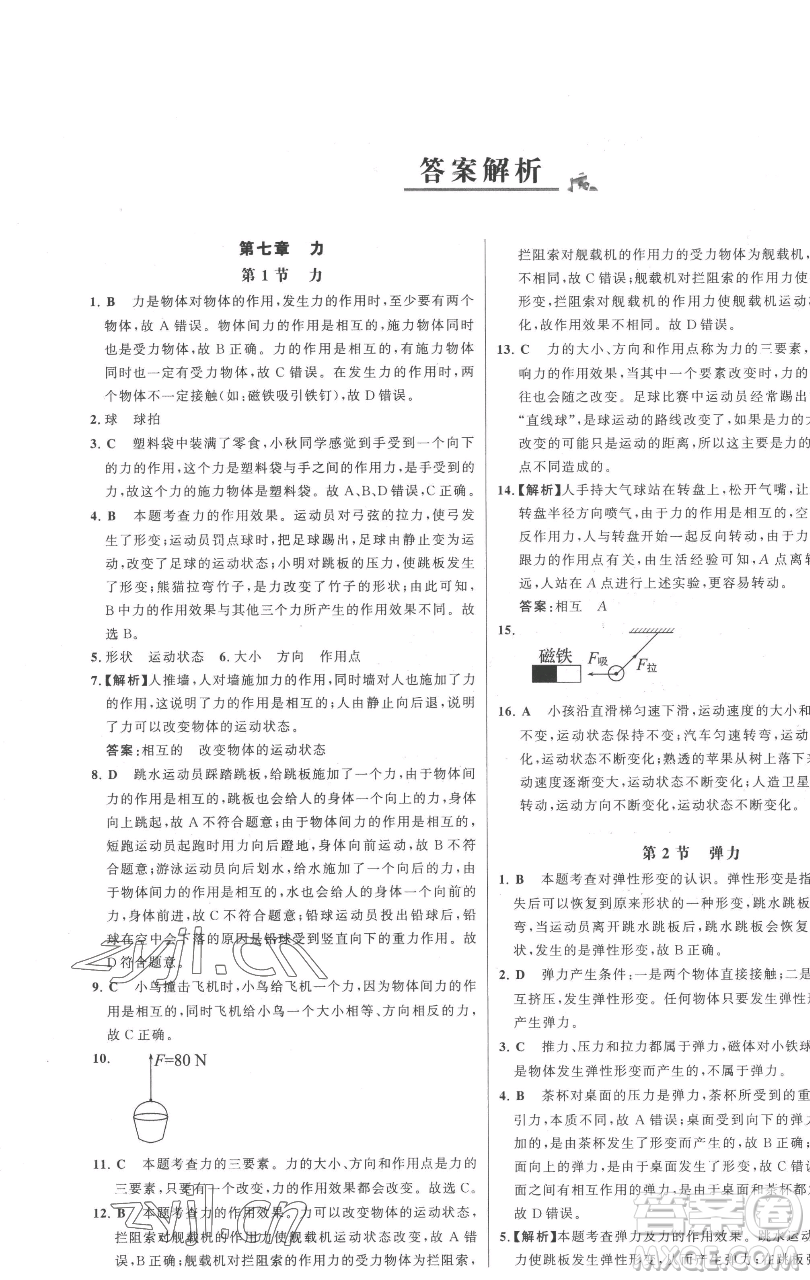 答案解析
第七章 力
第1节 力
1. B 力是物体对物体的作用,发生力的作用时,至少要有两个
物体,故A错误。物体间力的作用是相互的,施力物体同时
也是受力物体,故B正确。力的作用是相互的,故受力物体
同时也一定有受力物体,故C错误。在发生力的作用时,两
个物体不一定接触(如:磁铁吸引铁钉),故D错误。
2. 球 球拍
3. C 塑料袋中装满了零食,小秋同学感觉到手受到一个向下
的力的作用,这个力是塑料袋与手之间的作用力,手是受力
物体,故这个力的施力物体是塑料袋。故A、B、D错误,C正确。
4. B 本题考查力的作用效果。运动员对弓弦的拉力,使弓发
生了形变;运动员罚点球时,把足球踢出,足球由静止变为运
动,改变了足球的运动状态;小明对跳板的压力,使跳板发生
了形变;熊猫拉弯竹子,是力改变了竹子的形状;由此可知,
B中力的作用效果与其他三个力所产生的作用效果不同。故
选B。
5. 形状 运动状态 6. 大小 方向 作用点
7.【解析】人推墙,人对墙施加力的作用,同时墙对人也施加了力
的作用,这说明了力的作用是相互的;人由静止向后退,说明
了力可以改变物体的运动状态。
答案:相互的 改变物体的运动状态
8. D 跳水运动员踩踏跳板,给跳板施加了一个力,由于物体间
力的作用是相互的,跳板也会给人的身体一个向上的力,身体
向上跳起,故A不符合题意;由于物体间力的作用是相互的,
短跑运动员起跑时用力向后蹬地,身体前倾,故B不符合题
意;游泳运动员向后划水,给水一个向后的力,由于物体间力
的作用是相互的,水也会给人的身体一个向前的力,使身体向
前,故C不符合题意;铅球运动员投出铅球后,铅
球在空中会下落的原因是铅球受到竖直向下的重力作用。故
D符合题意。
9. C 小鸟撞击飞机时,小鸟给飞机一个力,因为物体间力的作
用是相互的,同时飞机给小鸟一个大小相等、方向相反的力,
故C正确。
10.
F=80 N
11. C 本题考查力的三要素。力的大小、方向和作用点是力的
三要素,只有一个改变,力的作用效果都会改变。故选C。
12. B 本题考查力的作用效果。力可以改变物体的运动状态,
拦阻索对舰载机的作用力使舰载机运动状态改变,
故B正确;舰载机对拦阻索的作用力的受力物体为拦阻索,
拦阻索对舰载机的作用力的受力物体为舰载机,
不相同,故C错误;舰载机对拦阻索的作用力使
形变,拦阻索对舰载机的作用力使舰载机运动
化,故作用效果不相同。故D错误。
13. C 力的大小、方向和作用点称为力的三要素,
响力的作用效果,当其中一个要素改变时,力的
往也会随之改变。足球比赛中运动员经常踢出
“直线球”,是球运动的路线改变了,如果是力的
改变的可能只是运动的距离,所以这主要是力的
点不同造成的。
14.【解析】人手持大气球站在转盘上,松开气嘴,让
转盘半径方向喷气,由于力的作用是相互的,空
反作用力,人与转盘开始一起反向转动,由于力
跟力的作用点有关,由生活经验可知,A点离转
远,人站在A点进行上述实验,更容易转动。
答案:相互 A
15.
磁铁
F吸
F拉
16. A 小孩沿直滑梯匀速下滑,运动速度的大小和
不变,运动状态保持不变;汽车匀速转弯,运动
化,运动状态不断变化;熟透的苹果从树上落下
动速度逐渐变大,运动状态不断变化;人造卫星
转动,运动方向不断变化,运动状态不断变化。
第2节 弹力
1. B 本题考查对弹性形变的认识。弹性形变是指
失后可以恢复到原来形状的一种形变,跳水跳板
弯,当运动员离开跳水跳板后,跳水跳板会恢复
状,发生的是弹性形变,故B正确。
2. D 弹力产生条件:一是两个物体直接接触;二是
互挤压,发生弹性形变。任何物体只要发生弹性
产生弹力。
3. C 推力、压力和拉力都属于弹力,磁体对小铁球
是物体发生弹性形变而产生的,不属于弹力。
4. B 茶杯对桌面的压力是弹力,茶杯所受到的重
引力,本质不同,故A错误;桌面受到向下的力
加的,是由茶杯发生了形变而产生的,故B正确;
面向上的弹力,是由于桌面发生了形变,故C错误
面之间有相互作用的弹力,桌面和茶杯都
故D错误。
5.【解析】本题考查弹力及力的作用效果。跳水运动
力使跳板发生弹性形变;在跳板弹
答案圈
MXQE.COM
zyji.cn
zyji.cn